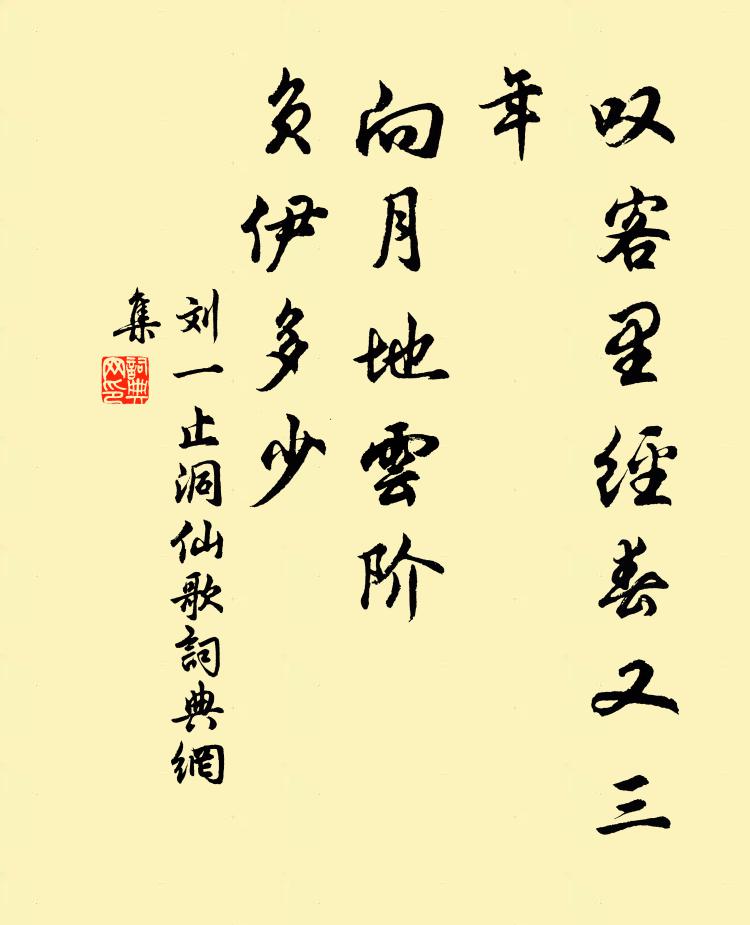 叹客里經春又三
年
向月地雲阶
负伊多少
刘一止洞仙歌詞典網
集
詞典
网印